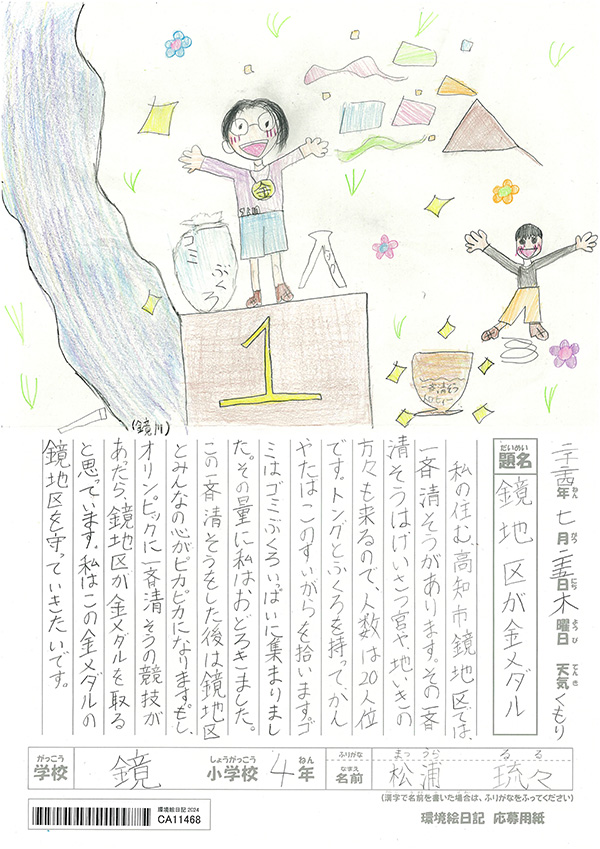 金
ゴミ
ぶくろ
1
一斉清そう
トロフィー
(鏡川)
年七月日木曜日 天気くもり
ねん がつ にち ようび てんき
だいめい
題名 鏡地区が金メダル
私の住む、高知市鏡地区では、
一斉清そうがあります。その一斉
清そうはけいさつ官や、地いきの
方々も来るので、人数は20人位
です。トングとふくろを持ってかん
やたはこのすいがらを拾います。ゴ
ミはゴミぶくろいぱいに集まりまし
た。その量に私はおどろきました。
この一斉清そうをした後は鏡地区
とみんなの心がピカピカになります。もし、
オリンピックに一斉清そうの競技が
あったら、鏡地区が金メダルを取る
と思っています。私はこの金メダルの
鏡地区を守っていきたいです。
がっこう しょうがっこう ねん ふりがな まつ うら る る
学校 鏡 小学校 4年 なまえ 名前 松浦 琉々
(漢字で名前を書いた場合は、ふりがなをふってください)
環境絵日記2024
CA11468
環境絵日記 応募用紙